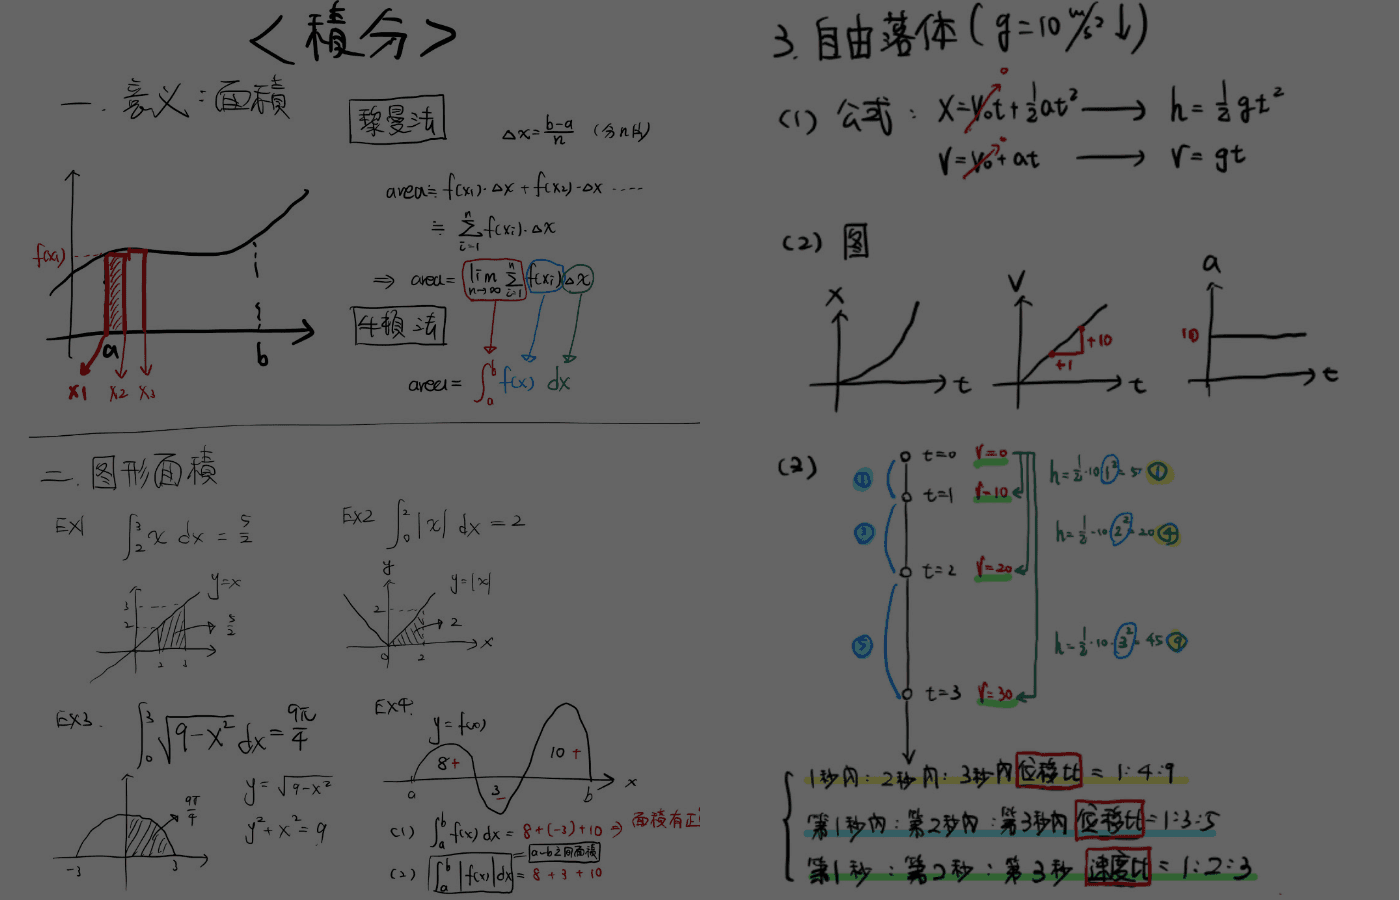 <積分>
一. 意义:面積
黎曼法
Δx = (b-a)/n (分n片)
area ≒ f(x₁)·Δx + f(x₂)·Δx ····
≒ Σ_{i=1}^{n} f(xᵢ)·Δx
⇒ area = lim_{n→∞} Σ_{i=1}^{n} f(xᵢ) Δx
牛頓法
area = ∫_a^b f(x) dx
f(x₁)
a b
x1 x2 x3
二. 图形面積
EX1 ∫_2^3 x dx = 5/2
y=x
3
2
5/2
2 3
EX2 ∫_0^2 |x| dx = 2
y
y=|x|
2
2
x
0 2
EX3. ∫_0^3 √(9-x²) dx = 9π/4
y = √(9-x²)
y² + x² = 9
9π/4
-3 3
EX4.
y=f(x)
8+ 3- 10+
a b x
(1) ∫_a^b f(x) dx = 8+(-3)+10 ⇒ 面積有正
= a~b之间面積
(2) ∫_a^b |f(x)| dx = 8 + 3 + 10
3. 自由落体 (g=10 m/s² ↓)
(1) 公式: x=v₀t+½at² → h=½gt²
0
v=v₀+at → v=gt
0
(2) 图
x t
v t
+10
+1
a t
10
(3)
t=0 v=0
t=1 v=10
t=2 v=20
t=3 v=30
① ③ ⑤
h=½·10·1²=5 ①
h=½·10·2²=20 ④
h=½·10·3²=45 ⑨
1秒内:2秒内:3秒内位移比=1:4:9
第1秒内:第2秒内:第3秒内位移比=1:3:5
第1秒:第2秒:第3秒 速度比=1:2:3